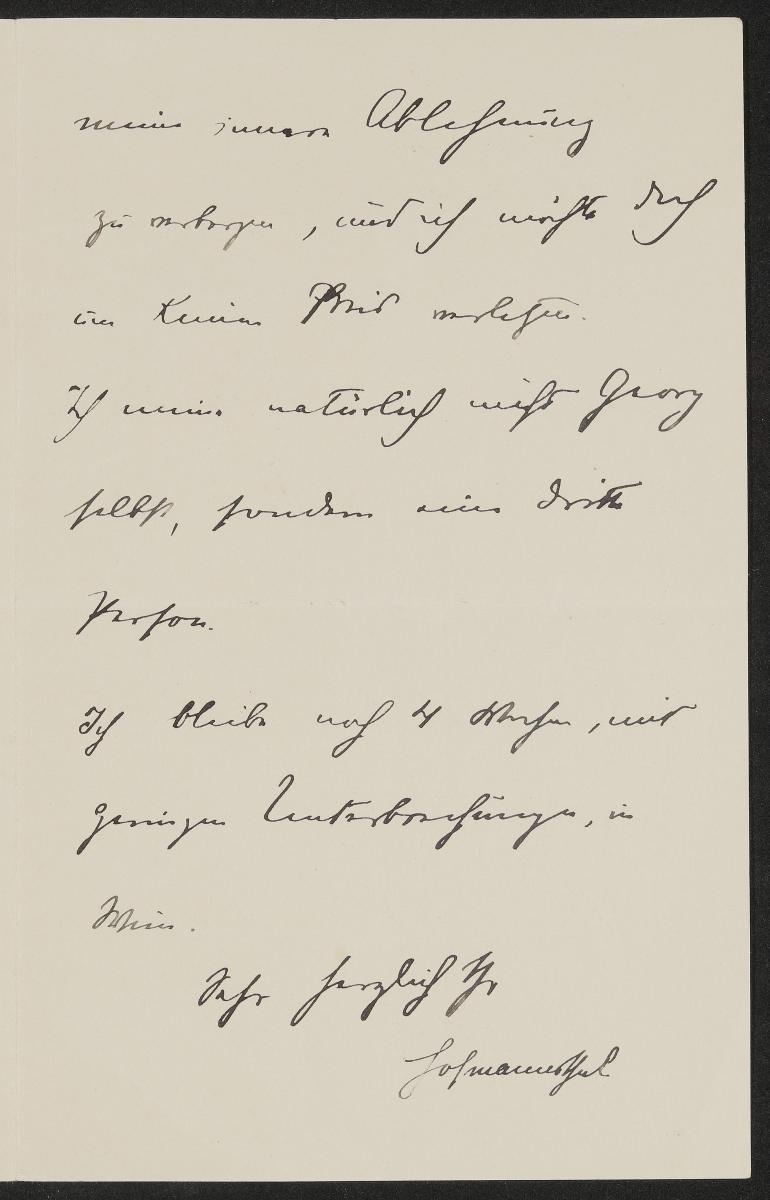 meine innere Ablehnung
zu verbergen, und ich möchte doch
um keinen Preis verletzen.
Ich meine natürlich nicht Georg
selbst, sondern eine dritte
Person.
Ich bleibe noch 4 Wochen, mit
geringen Unterbrechungen, in
Wien.
Sehr herzlich Ihr
Hofmannsthal